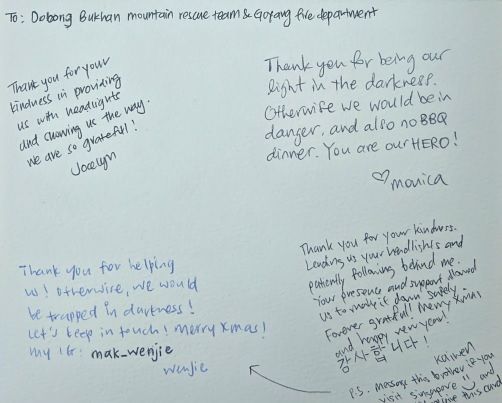 To: Dobong Bukhan mountain rescue team & Goyang fire department
Thank you for your
kindness in providing
us with headlights
and showing us the way.
We are so grateful!
Jocelyn
Thank you for being our
light in the darkness.
Otherwise we would be in
danger, and also no BBQ
dinner. You are our HERO!
♡ monica
Thank you for helping
us! Otherwise, we would
be trapped in darkness!
Let's keep in touch! Merry Xmas!
my IG: mak_wenjie
wenjie
Thank you for your kindness.
Lending us your headlights and
patiently following behind me.
Your presence and support allowed
us to make it down safely.
Forever grateful! Merry Xmas
and happy new year!
감사합니다!
P.S. message this brother if you
visit singapore and
this card